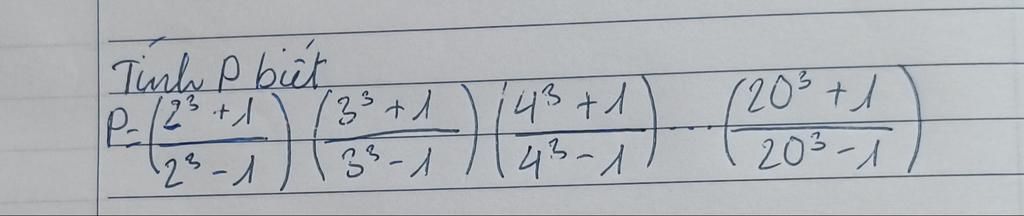 Tính P biết
P = (2³ + 1 / 2³ - 1) (3³ + 1 / 3³ - 1) (4³ + 1 / 4³ - 1) .... (20³ + 1 / 20³ - 1)